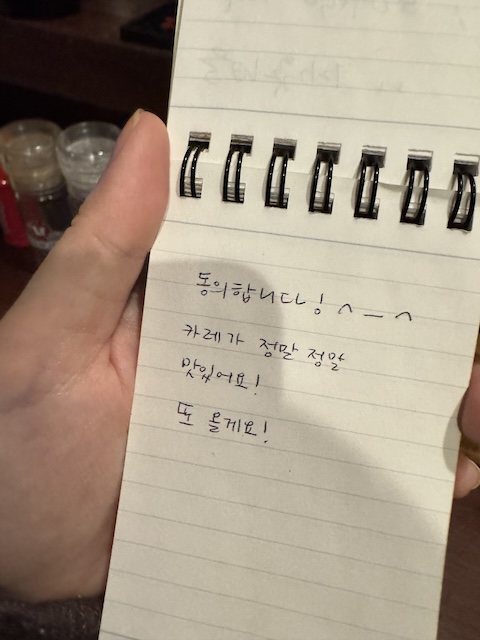 동의합니다! ^ㅡ^
카레가 정말 정말
맛있어요!
또 올게요!